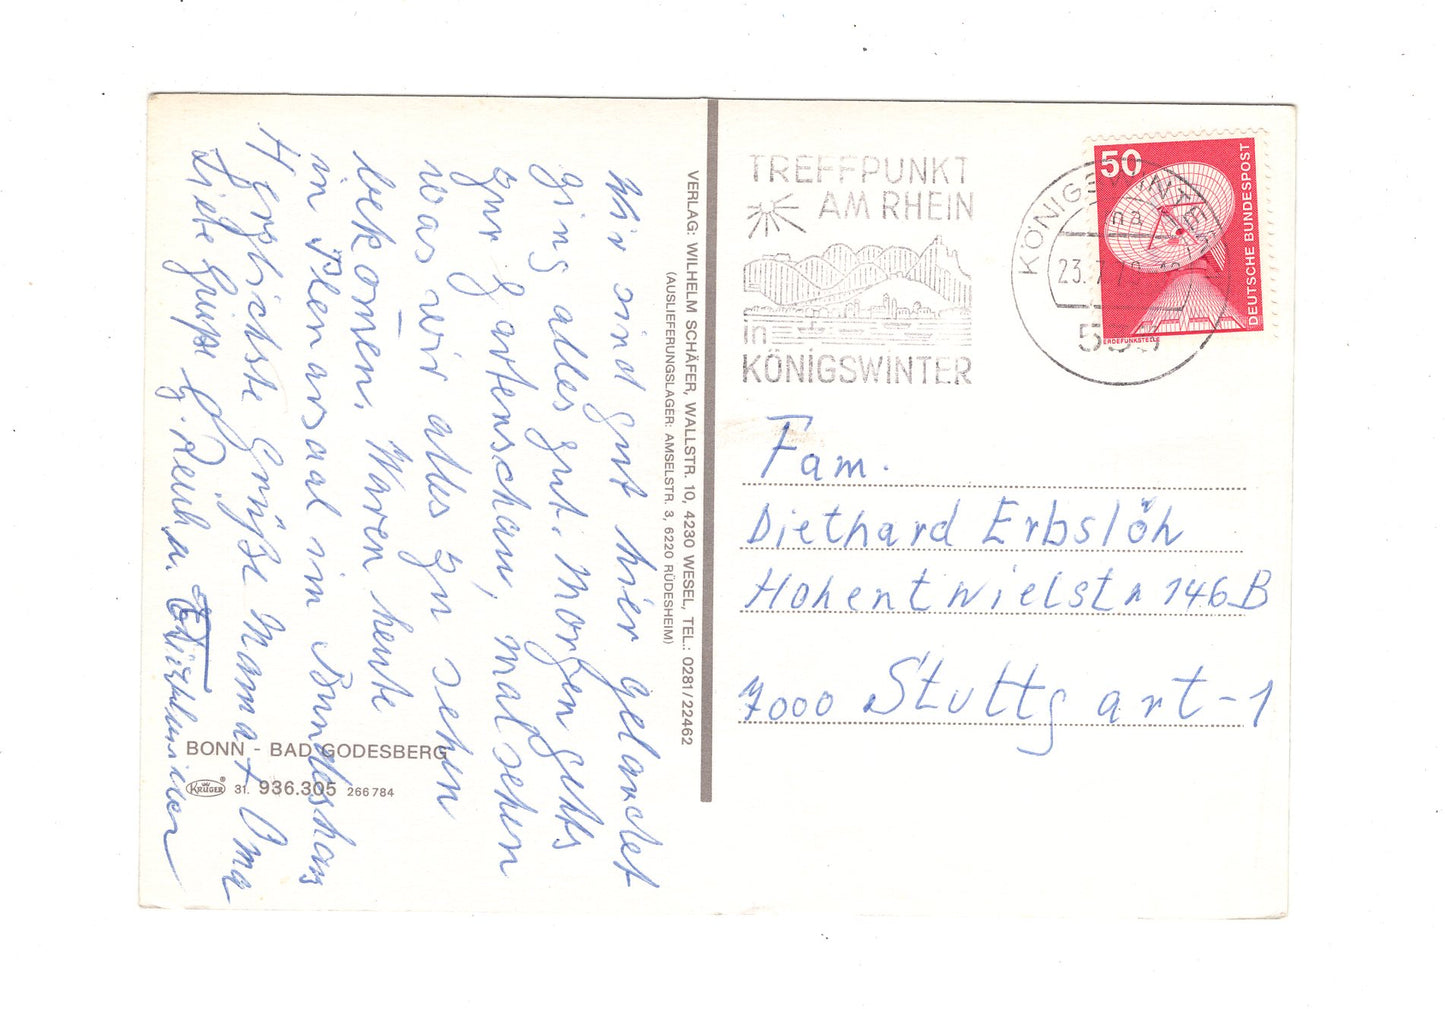 Wir sind gut hier gelandet
ging alles gut. Morgen gehts
zur Gartenschau, mal sehen
was wir alles zu sehen
bekomen. Waren heute
in Plenarsaal im Bundeshaus
Herzlichste Grüße Mama + Oma
Liebe Grüße
VERLAG: WILHELM SCHÄFER, WALLSTR. 10, 4230 WESEL, TEL.: 0281/22462
(AUSLIEFERUNGSLAGER: AMSELSTR. 3, 6220 RÜDESHEIM)
BONN - BAD GODESBERG
KRÜGER ® 31. 936.305 266 784
TREFFPUNKT
AM RHEIN
in
KÖNIGSWINTER
KÖNIGSWINTER
23.7
50
DEUTSCHE BUNDESPOST
ERDEFUNKSTELLE
Fam.
Diethard Erbslöh
Hohentwielstr 146B
7000 Stuttgart-1